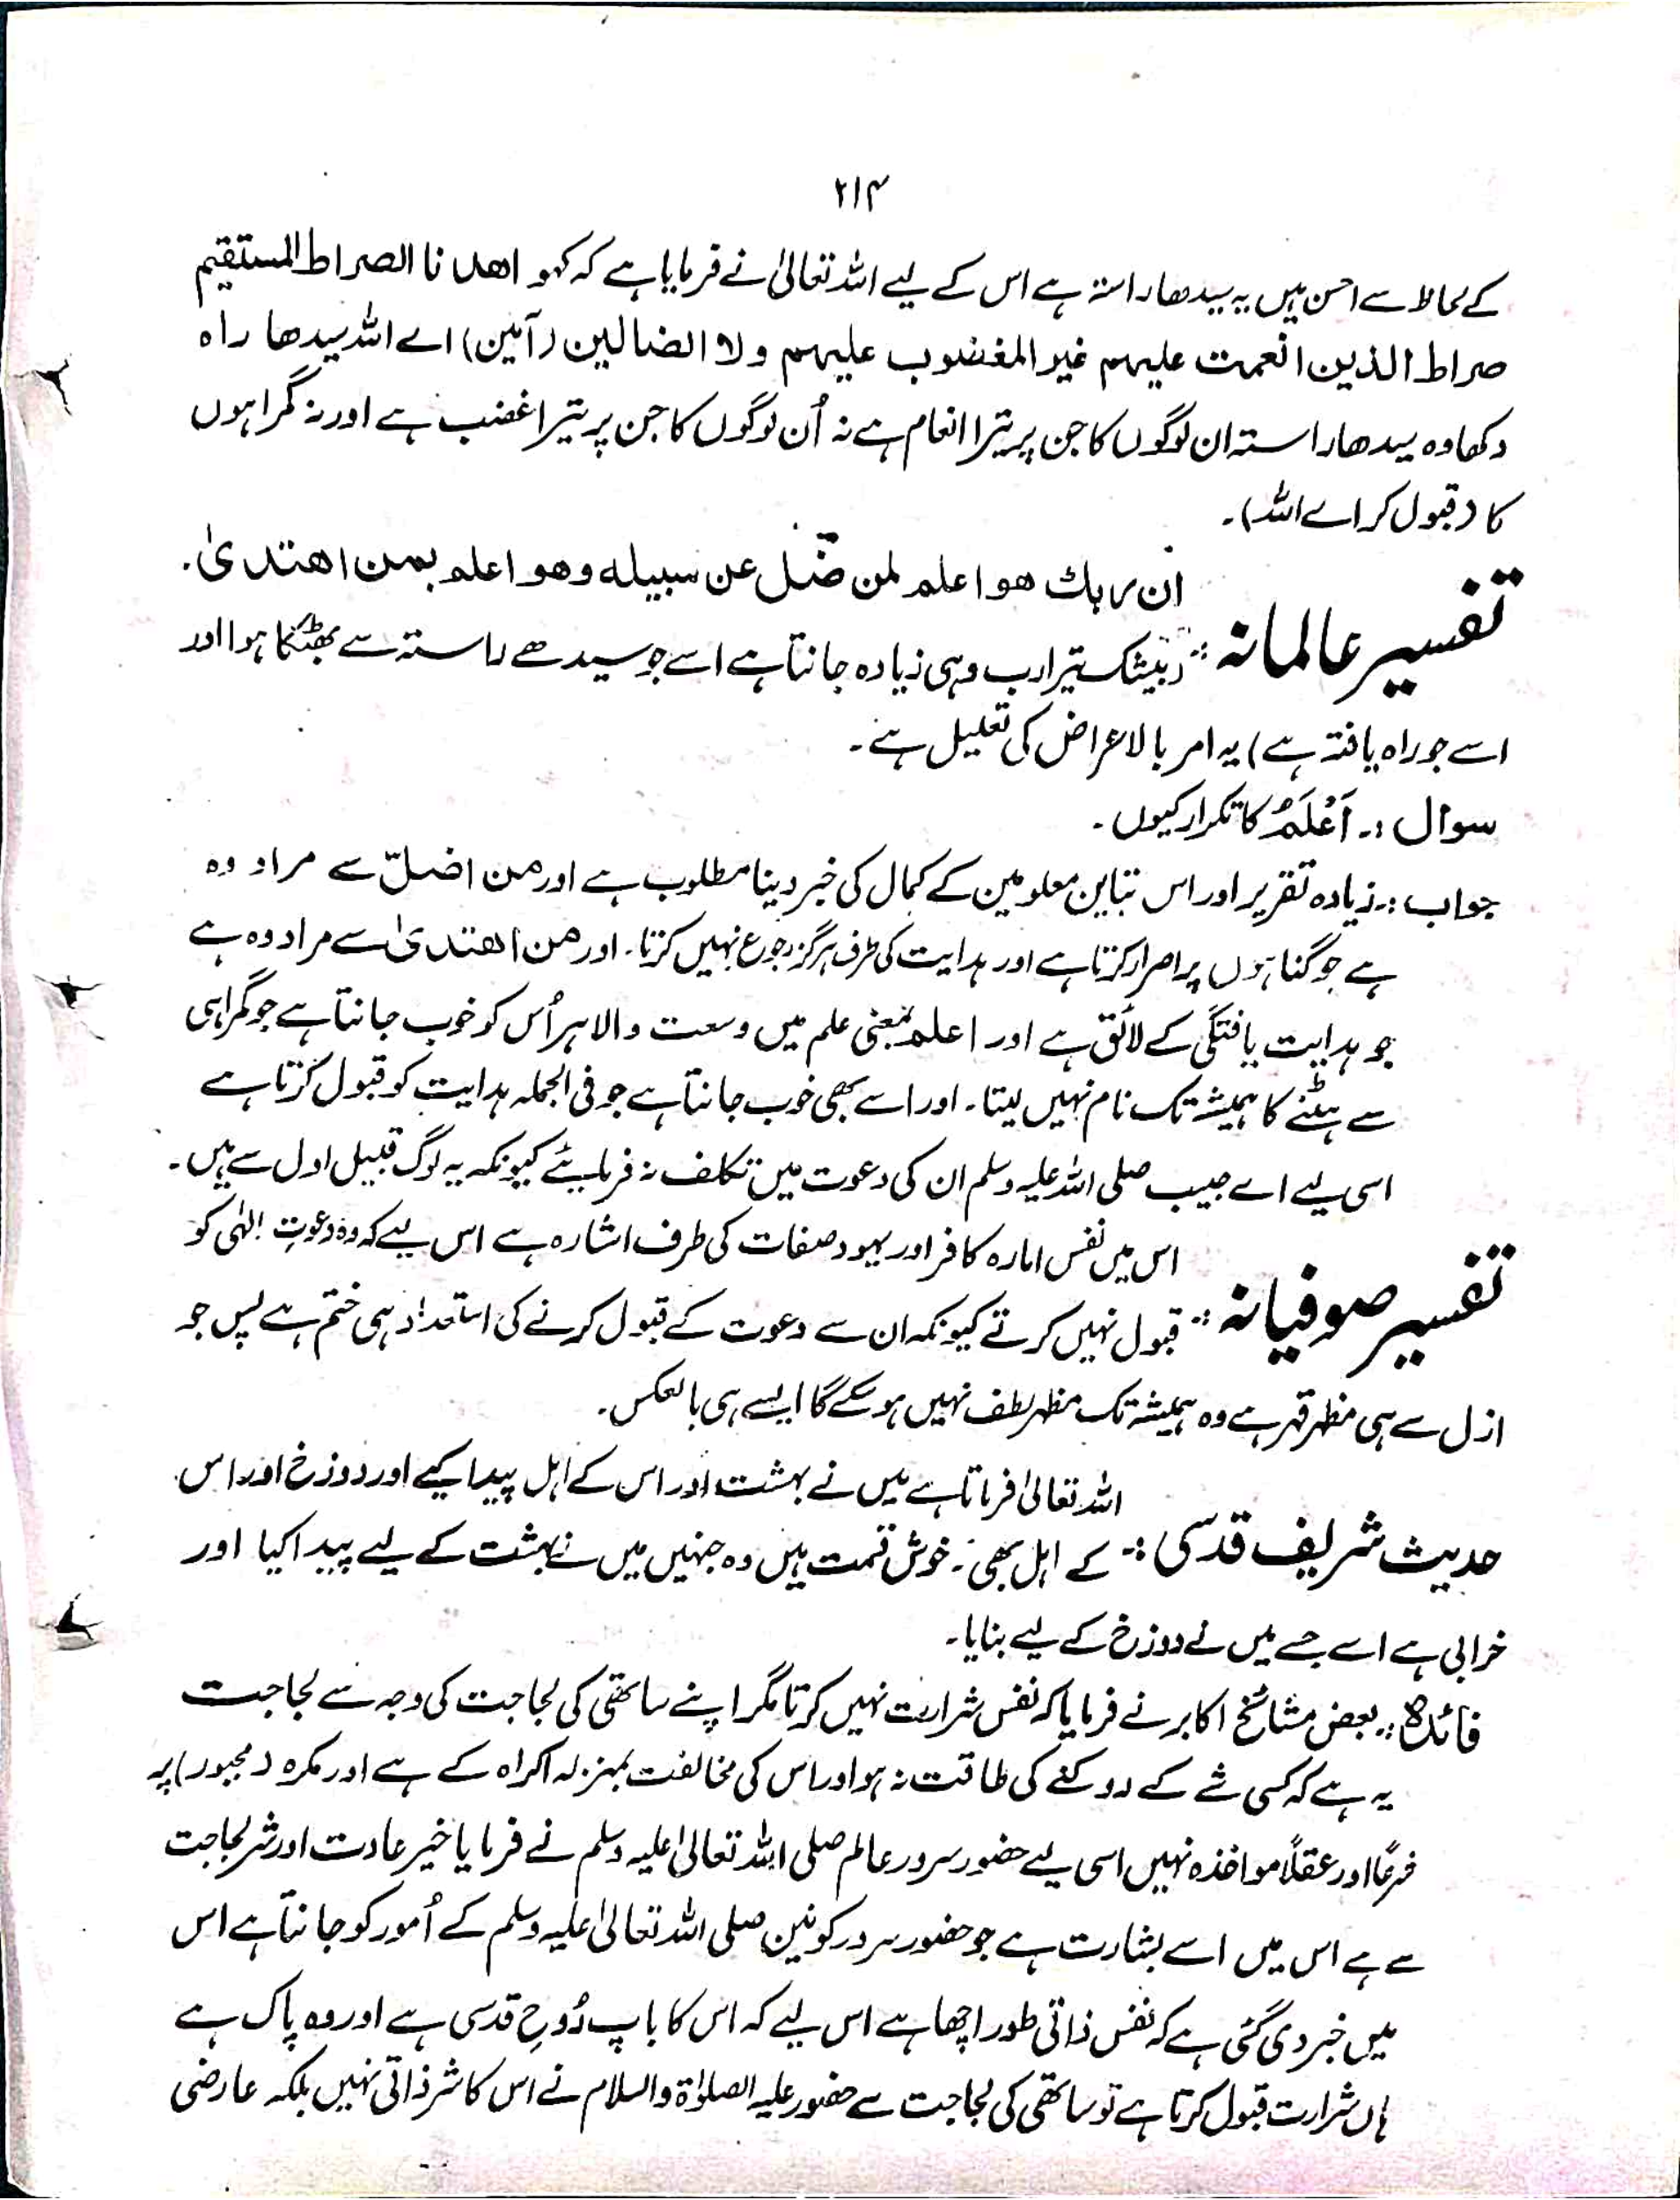 ۲۱۴
کے لحاظ سے احسن ہیں یہ سیدھا راستہ ہے اس کے لیے اللہ تعالیٰ نے فرمایا ہے کہ کہو اھدنا الصراط المستقیم
صراط الذین انعمت علیہم غیر المغضوب علیہم ولا الضالین (آمین) اے اللہ سیدھا راہ
دکھا وہ سیدھا راستہ ان لوگوں کا جن پر تیرا انعام ہے نہ اُن لوگوں کا جن پر تیرا غضب ہے اور نہ گمراہوں
کا (قبول کر اے اللہ)۔
ان ربك هو اعلم لمن ضّل عن سبیله وهو اعلم بمن اهتدیٰ.
تفسیر عالمانہ :- (بیشک تیرا رب وہی زیادہ جانتا ہے اسے جو سیدھے راستہ سے بھٹکا ہوا اور
اسے جو راہ یافتہ ہے) یہ امر بالاعراض کی تعلیل ہے۔
سوال :۔ اَعْلَمُ کا تکرار کیوں۔
جواب :۔ زیادہ تقریر اور اس تباین معلومین کے کمال کی خبر دینا مطلوب ہے اور من اضلّ سے مراد وہ
ہے جو گناہوں پر اصرار کرتا ہے اور ہدایت کی طرف ہرگز رجوع نہیں کرتا۔ اور من اهتدیٰ سے مراد وہ ہے
جو ہدایت یافتگی کے لائق ہے اور اعلم بمعنی علم میں وسعت والا ہر اُس کو خوب جانتا ہے جو گمراہی
سے ہٹنے کا ہمیشہ تک نام نہیں لیتا۔ اور اسے بھی خوب جانتا ہے جو فی الجملہ ہدایت کو قبول کرتا ہے
اسی لیے اے حبیب صلی اللہ علیہ وسلم ان کی دعوت میں تکلف نہ فرمایئے کیونکہ یہ لوگ قبیل اول سے ہیں۔
اس میں نفس امارہ کافر اور یہود صفات کی طرف اشارہ ہے اس لیے کہ وہ دعوتِ الٰہی کو
تفسیر صوفیانہ :- قبول نہیں کرتے کیونکہ ان سے دعوت کے قبول کرنے کی استعداد ہی ختم ہے پس جو
ازل سے ہی مظہر قہر ہے وہ ہمیشہ تک مظہر لطف نہیں ہو سکے گا ایسے ہی بالعکس۔
اللہ تعالیٰ فرماتا ہے میں نے بہشت اور اس کے اہل پیدا کیے اور دوزخ اور اس
حدیث شریف قدسی :- کے اہل بھی۔ خوش قسمت ہیں وہ جنہیں میں نے بہشت کے لیے پیدا کیا اور
خرابی ہے اسے جسے میں نے دوزخ کے لیے بنایا۔
فائدہ :۔ بعض مشائخ اکابر نے فرمایا کہ نفس شرارت نہیں کرتا مگر اپنے ساتھی کی لجاجت کی وجہ سے لجاجت
یہ ہے کہ کسی شے کے روکنے کی طاقت نہ ہو اور اس کی مخالفت بمنزلہ اکراہ کے ہے اور مکرہ (مجبور) پر
شرعًا اور عقلًا مواخذہ نہیں اسی لیے حضور سرور عالم صلی اللہ تعالیٰ علیہ وسلم نے فرمایا خیر عادت اور شر لجاجت
سے ہے اس میں اسے بشارت ہے جو حضور سرور کونین صلی اللہ تعالیٰ علیہ وسلم کے اُمور کو جانتا ہے اس
میں خبر دی گئی ہے کہ نفس ذاتی طور اچھا ہے اس لیے کہ اس کا باپ رُوحِ قدسی ہے اور وہ پاک ہے
ہاں شرارت قبول کرتا ہے تو ساتھی کی لجاجت سے حضور علیہ الصلوٰۃ والسلام نے اس کا شر ذاتی نہیں بلکہ عارضی